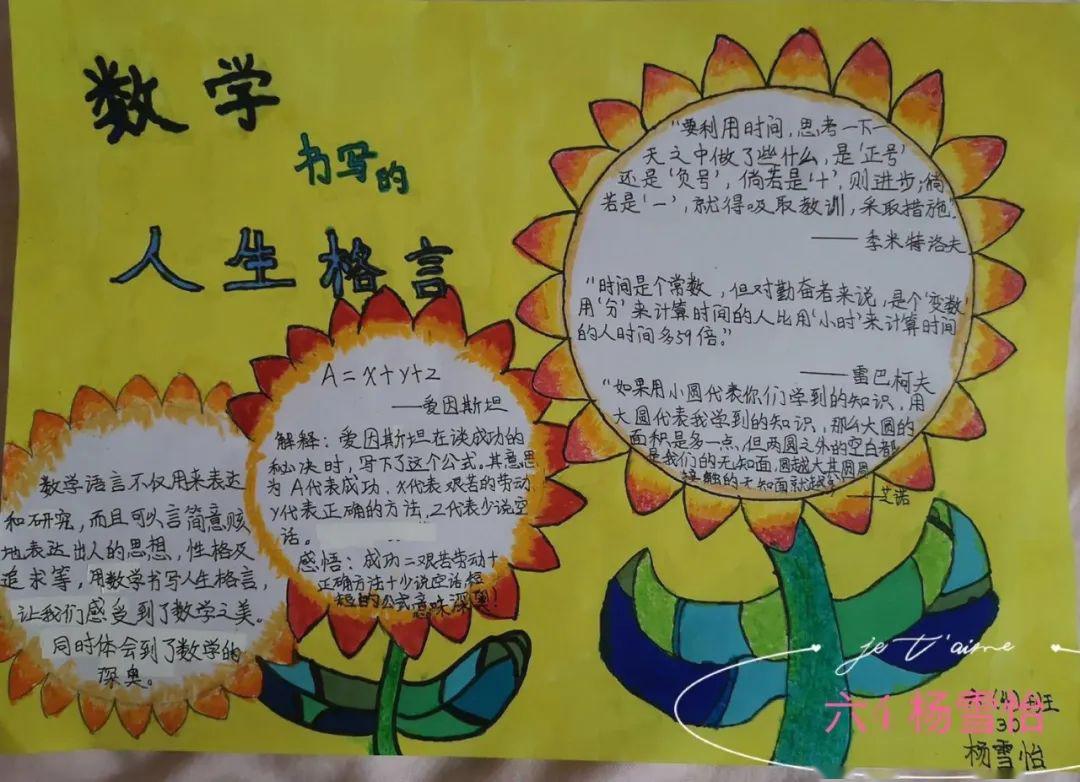 数学
书写的
人生格言
"要利用时间,思考一下一
天之中做了些什么,是'正号'
还是'负号',倘若是'+',则进步;倘
若是'一',就得吸取教训,采取措施。"
——季米特洛夫
"时间是个常数,但对勤奋者来说,是个'变数'
用'分'来计算时间的人比用'小时'来计算时间
的人时间多59倍。"
——雷巴柯夫
"如果用小圆代表你们学到的知识,用
大圆代表我学到的知识,那么大圆的
面积是多一点,但两圆之外的空白都
是我们的无知面,圆越大其圆周
接触的无知面就越多"
——艾诺
A=x+y+z
——爱因斯坦
解释:爱因斯坦在谈成功的
秘决时,写下了这个公式。其意思
为A代表成功,X代表艰苦的劳动
y代表正确的方法,Z代表少说空
话。
感悟:成功=艰苦劳动+
正确方法+少说空话 短
短的公式意味深奥!
数学语言不仅用来表达
和研究,而且可以言简意赅
地表达出人的思想,性格及
追求等,用数学书写人生格言,
让我们感受到了数学之美。
同时体会到了数学的
深奥。
je t'aime
六4 杨雪怡
班
杨雪怡